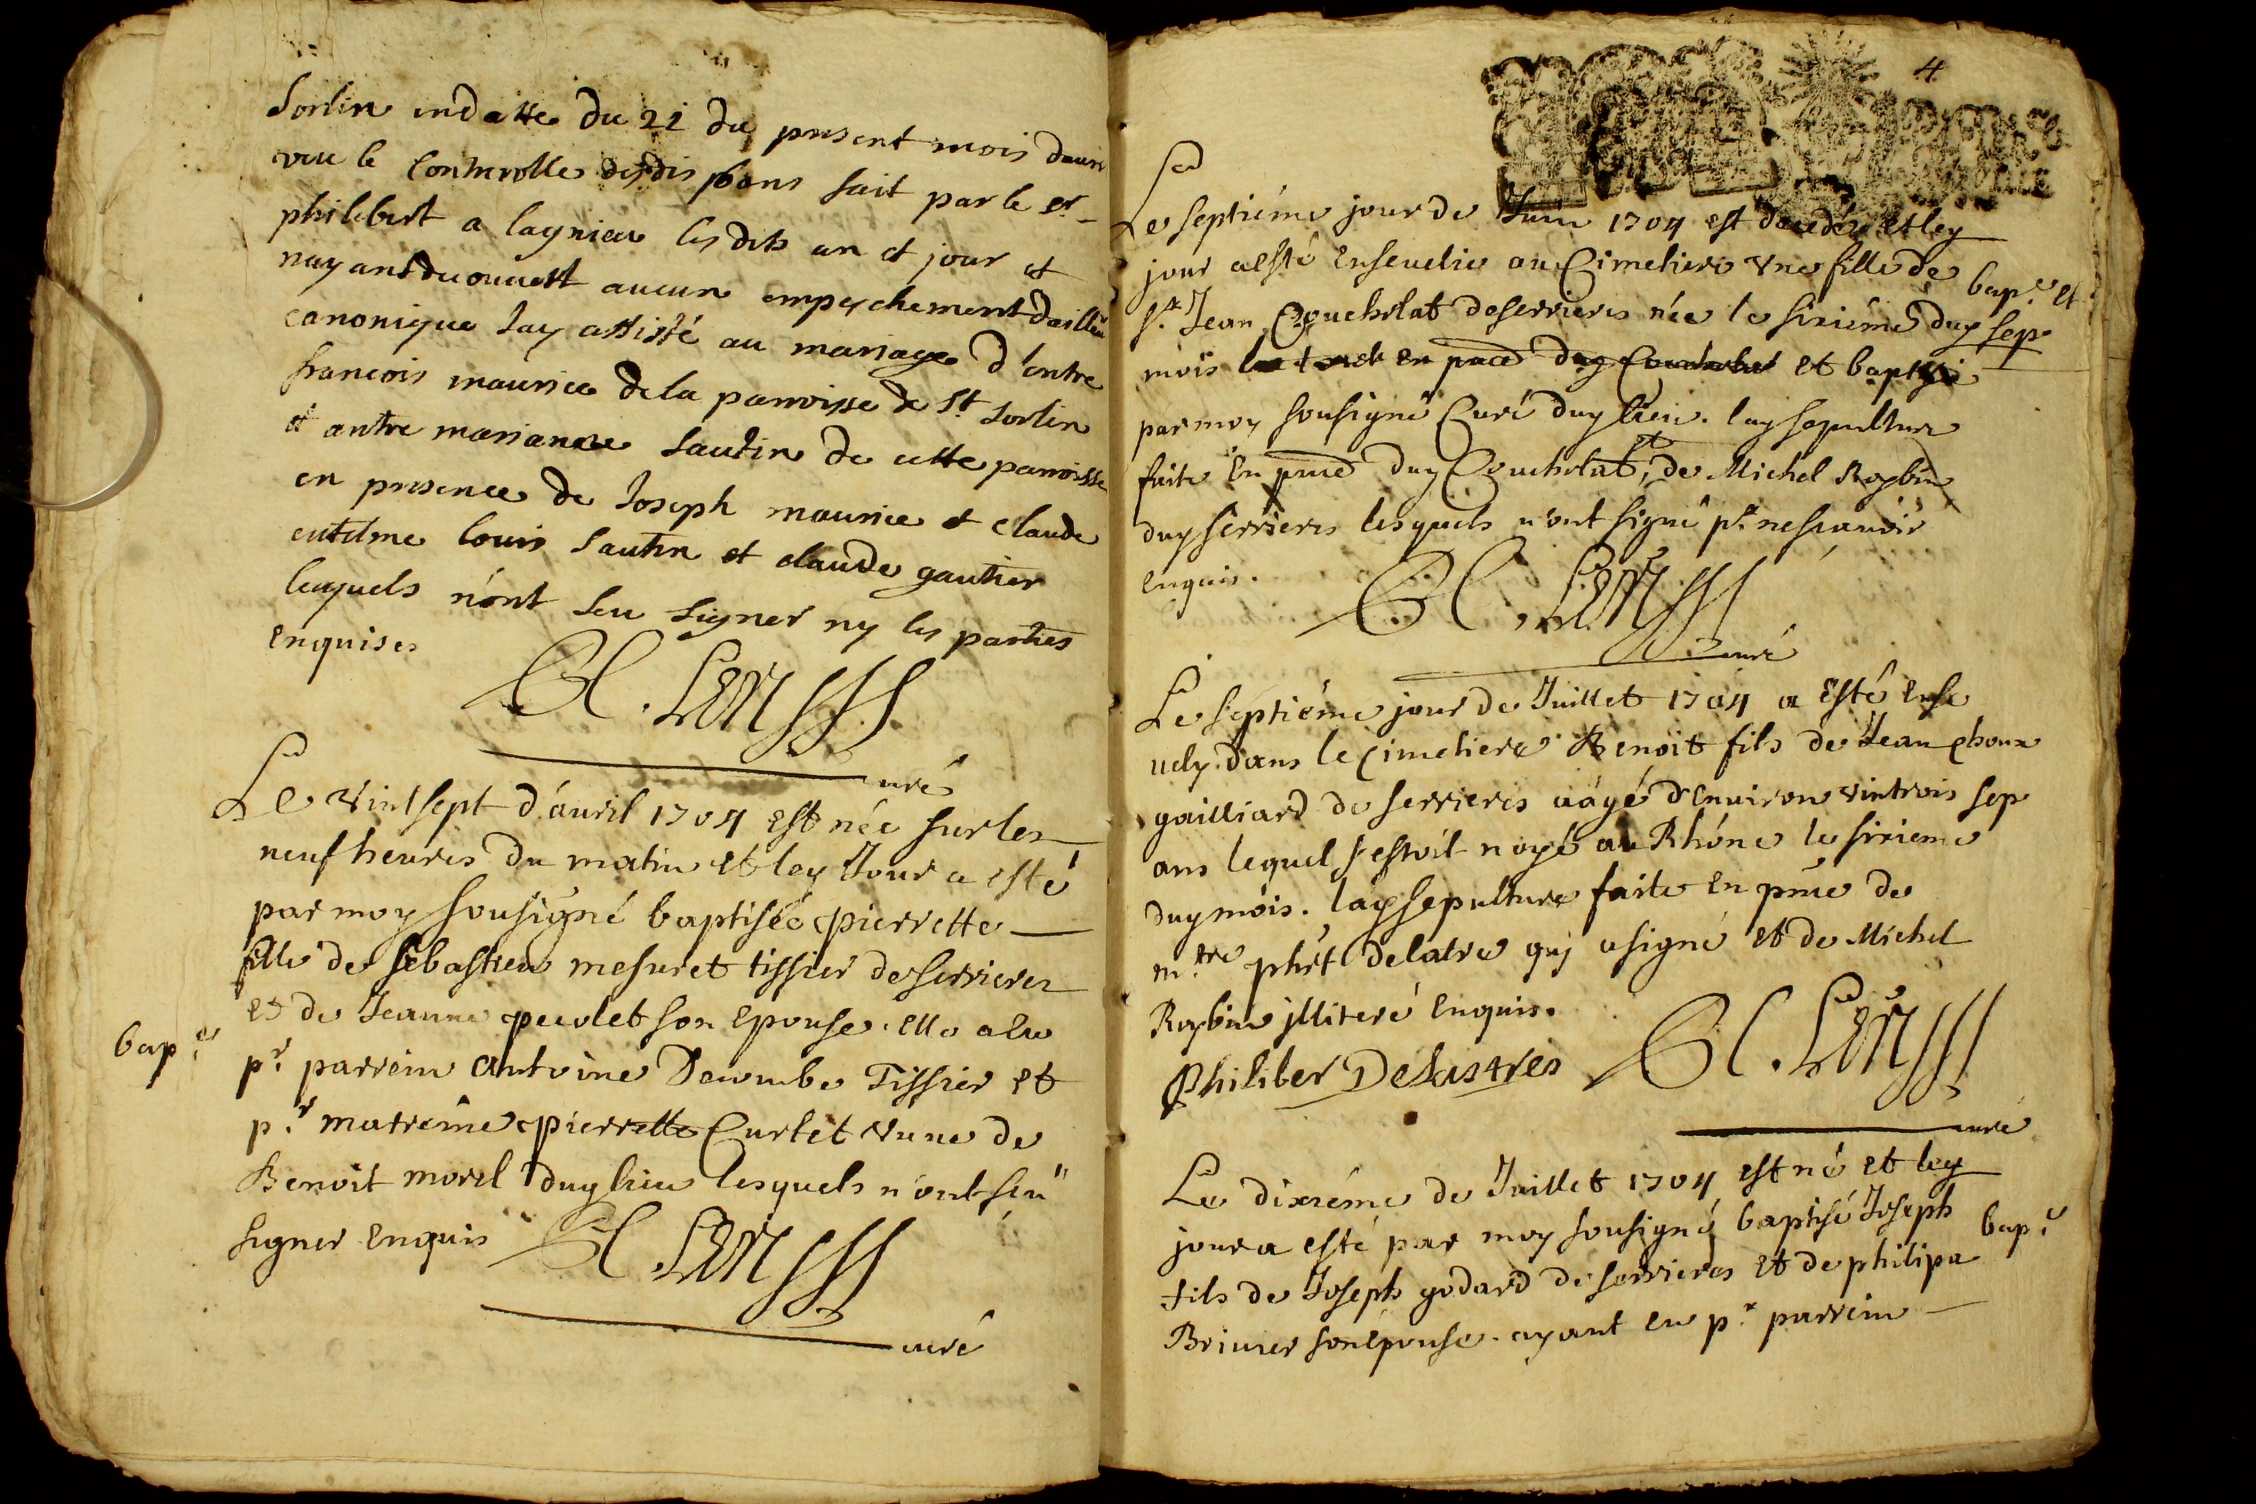 Sorlin en datte du 21 du present mois d'avri
veu le Controolle desdis bans fait par le sr
philibert a lagnieu lesdits an et jour et
nayant decouvert aucun empeschement dailleu
canonique Jay assisté au mariage d'entre
francois maurice de la parroisse de St Sorlin
et antre mariane Sautin de cette parroisse
en presence de Joseph maurice et Claude
louis Sautin et claude gautier
lesquels n'ont seu signer ny les parties
enquises
curé
Le vint sept d'avril 1704 est née sur les
neuf heures du matin et ley Jour a esté
par moy sousigné baptisée pierrette
fille de sebastien mesuret tissier de serrieres
bap.e
et de Jeanne pecolet son epouse. elle a eu
pr. parrein antoine Decombe Tissier et
pr. marreine pierrette Curtet vuve de
Benoit morel duy lieu lesquels n'ont seu
signer enquis
curé
4
Le septiéme jour de Juin 1704 est decedée et ley
jour a esté ensevelie au Cimetiere vne fille de
bap.e et
sr. Jean Coucholat de serrieres née le sixiéme duy
sep
mois en pnce duy Coucholat et baptisé
par moy sousigné Curé duy lieu. lay sepulture
faite en pnce duy Coucholat, et de Michel Roybin
duy serrieres lesquels n'ont signé pr. ne scavoir
enquis.
curé
Le septiéme jour de Juillet 1704 a esté ense
vely dans le cimetiere Benoit fils de Jean choux
gailliard de serrieres aagé d'environ vintrois
sep
ans lequel s'estoit noyé au Rhône le sixieme
duy mois. lay sepulture faite en pnce de
m.tre phrt delatre quj a signé et de Michel
Roybin jlliteré enquis.
Philiber Delastres
curé
Le dixiéme de Juillet 1704 est né et ley
jour a esté par moy sousigné baptisé Joseph
bap.e
fils de Joseph godard de serrieres et de philipa
Brivier son epouse. ayant eu pr. parrein